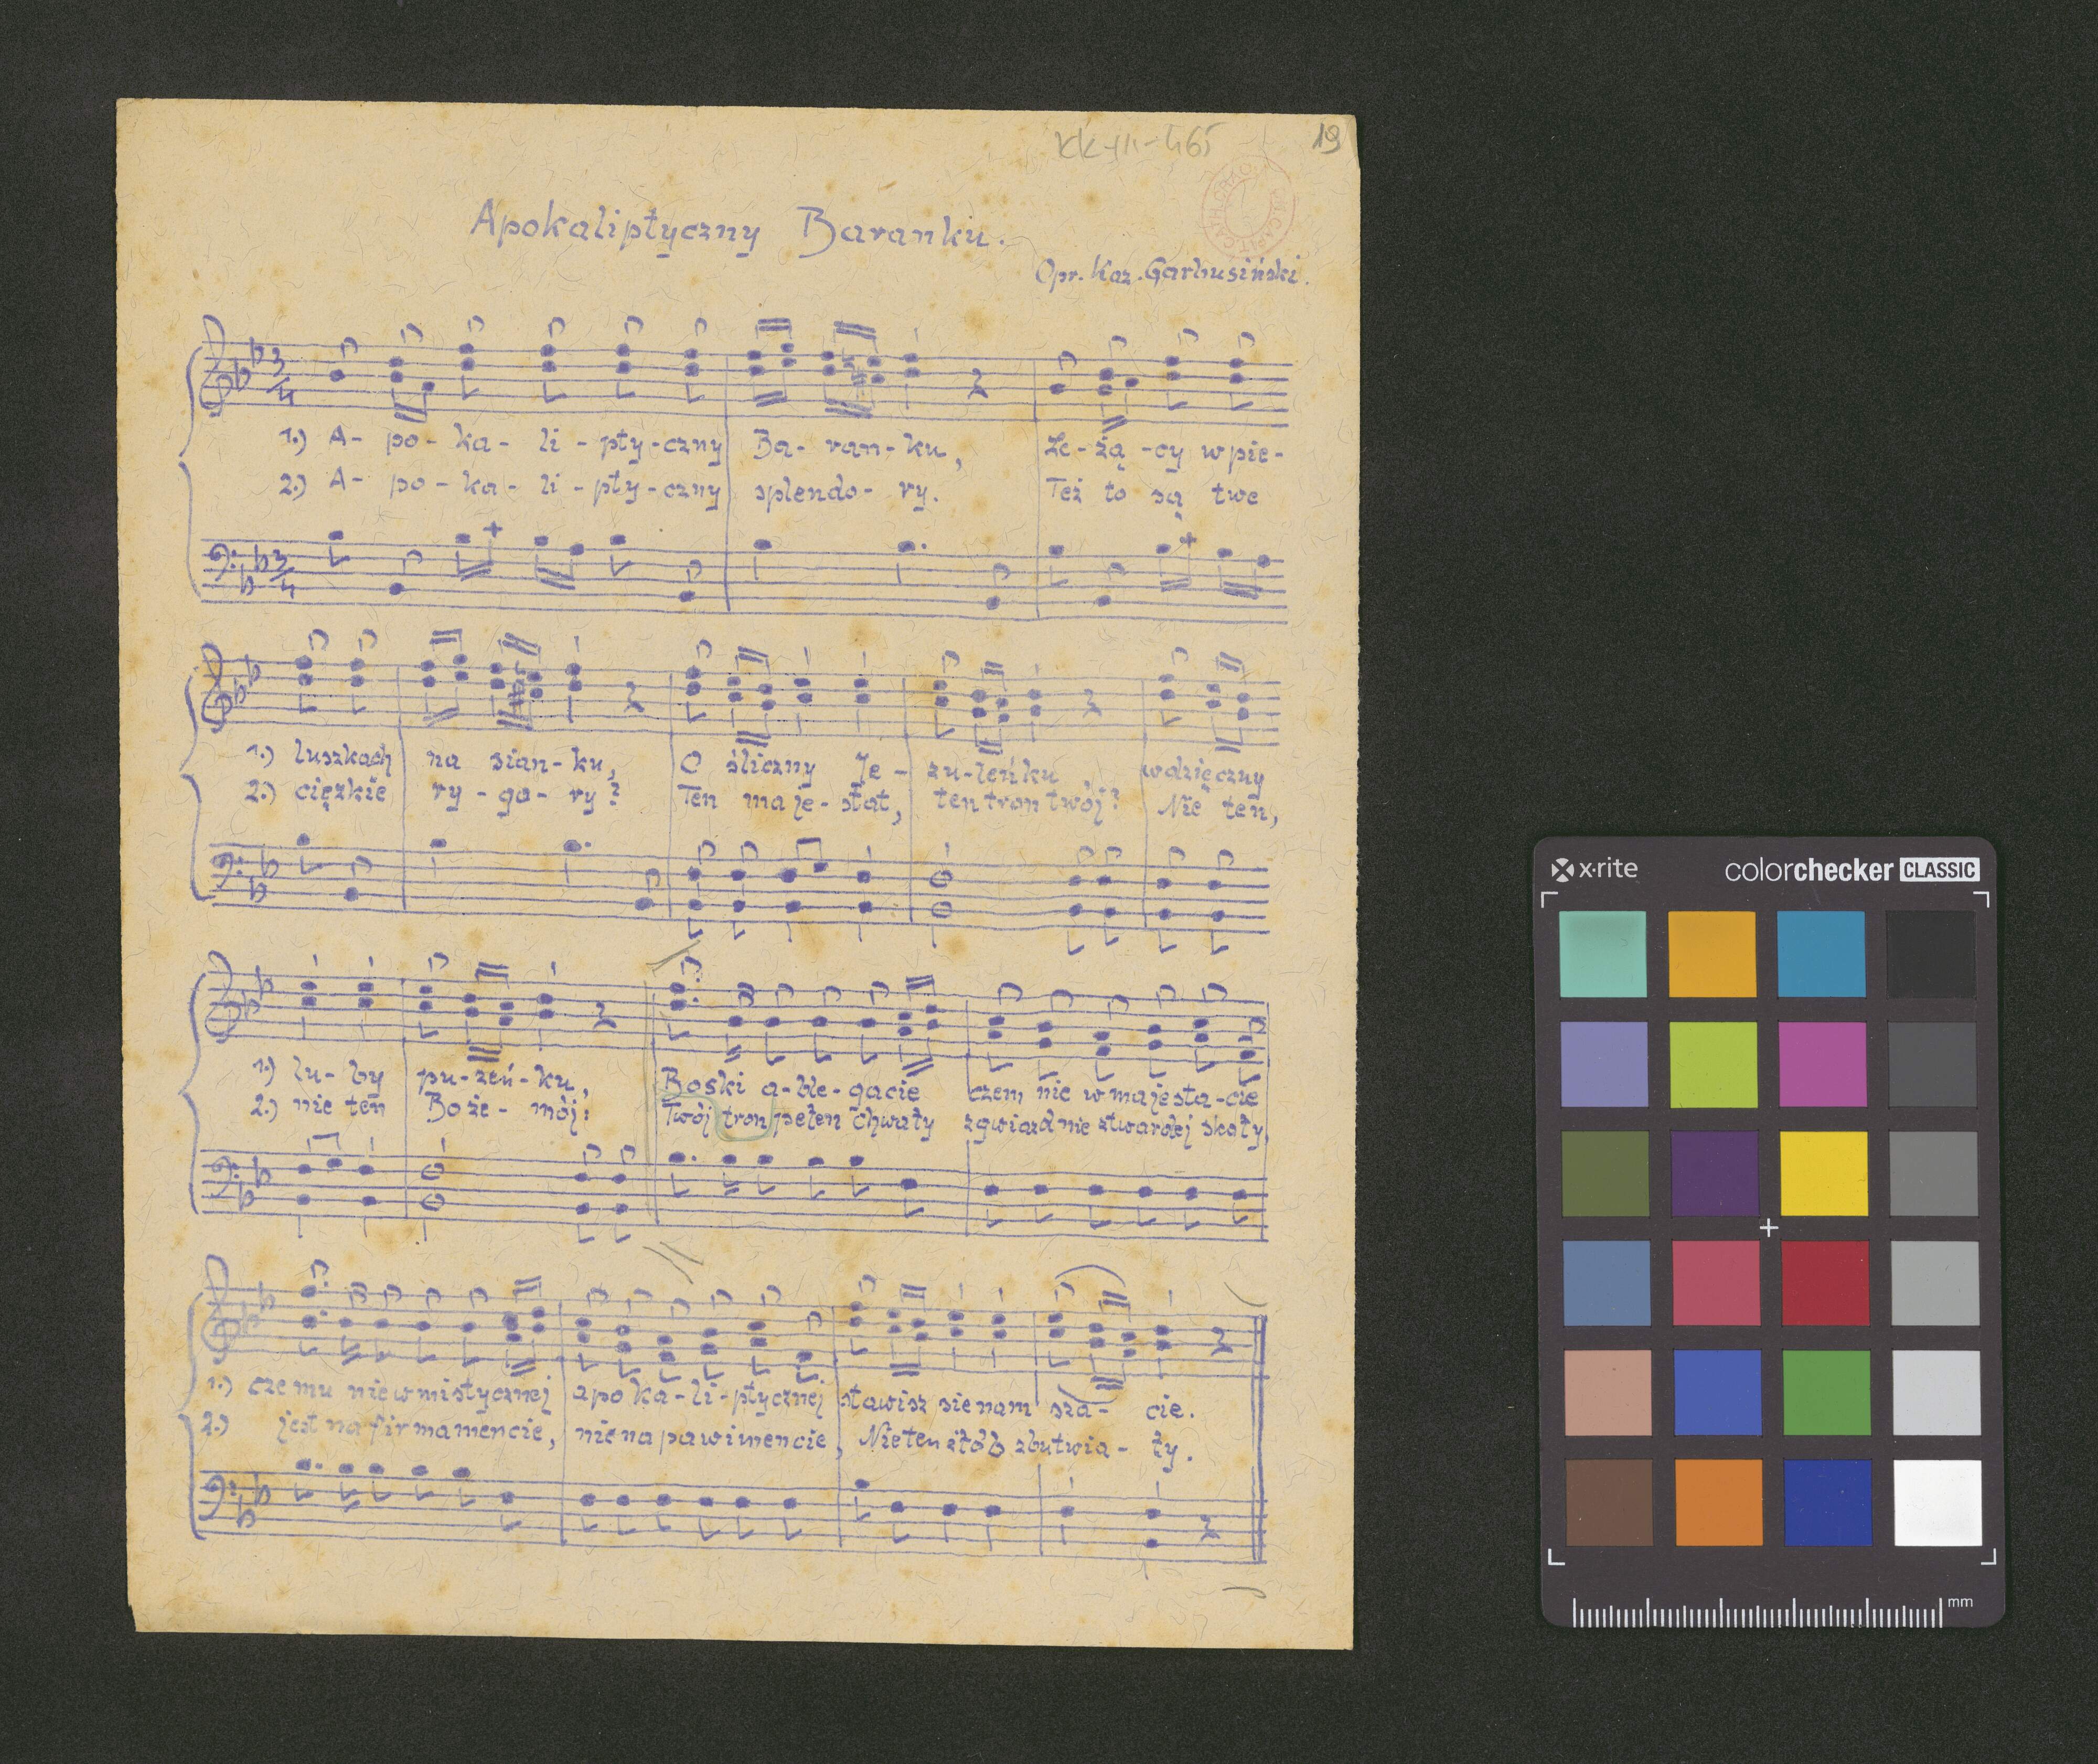 KK-III-465
19
Apokaliptyczny Baranku.
Opr. Kaz. Garbusiński.
3/4
1.) A- po- ka- li- pty-czny Ba- ran-ku, Le-żą-cy w pie-
2.) A- po- ka- li- pty-czny splendo- ry. Też to są twe
3/4
1.) luszkach na sian-ku, O śliczny Je- zu-leńku, wdzięczny
2.) ciężkie ry-go-ry? Ten maje-stat, ten tron twój? Nie ten,
1.) lu-by pu-zeń-ku, Boski a-ble-gacie czem nie w majesta-cie
2.) nie ten Boże- mój! Twój tron pełen chwały z gwiazd nie z twardej skały,
1.) czemu nie w mistycznej apo ka-li-ptycznej stawisz sie nam sza- cie.
2.) jest na firmamencie, nie na pawimencie, Nie ten żłób zbutwia- ły.
x·rite
colorchecker CLASSIC
mm